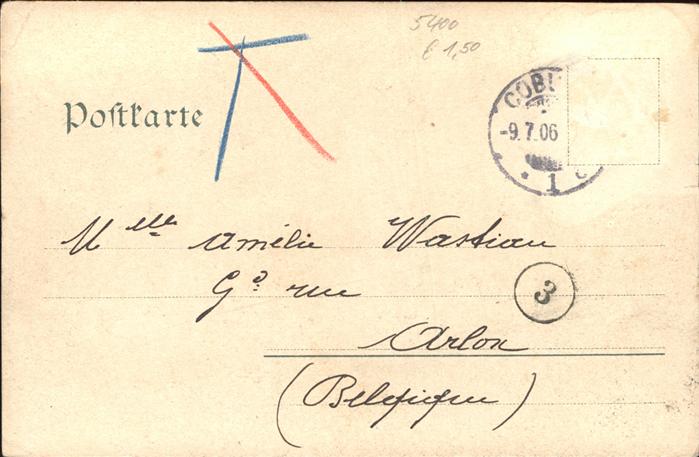 5400
€ 1,50
Postkarte
COBU
-9.7.06
* 1 c
Melle Amélie Wastian
Gd rue
3
Arlon
(Belgique)